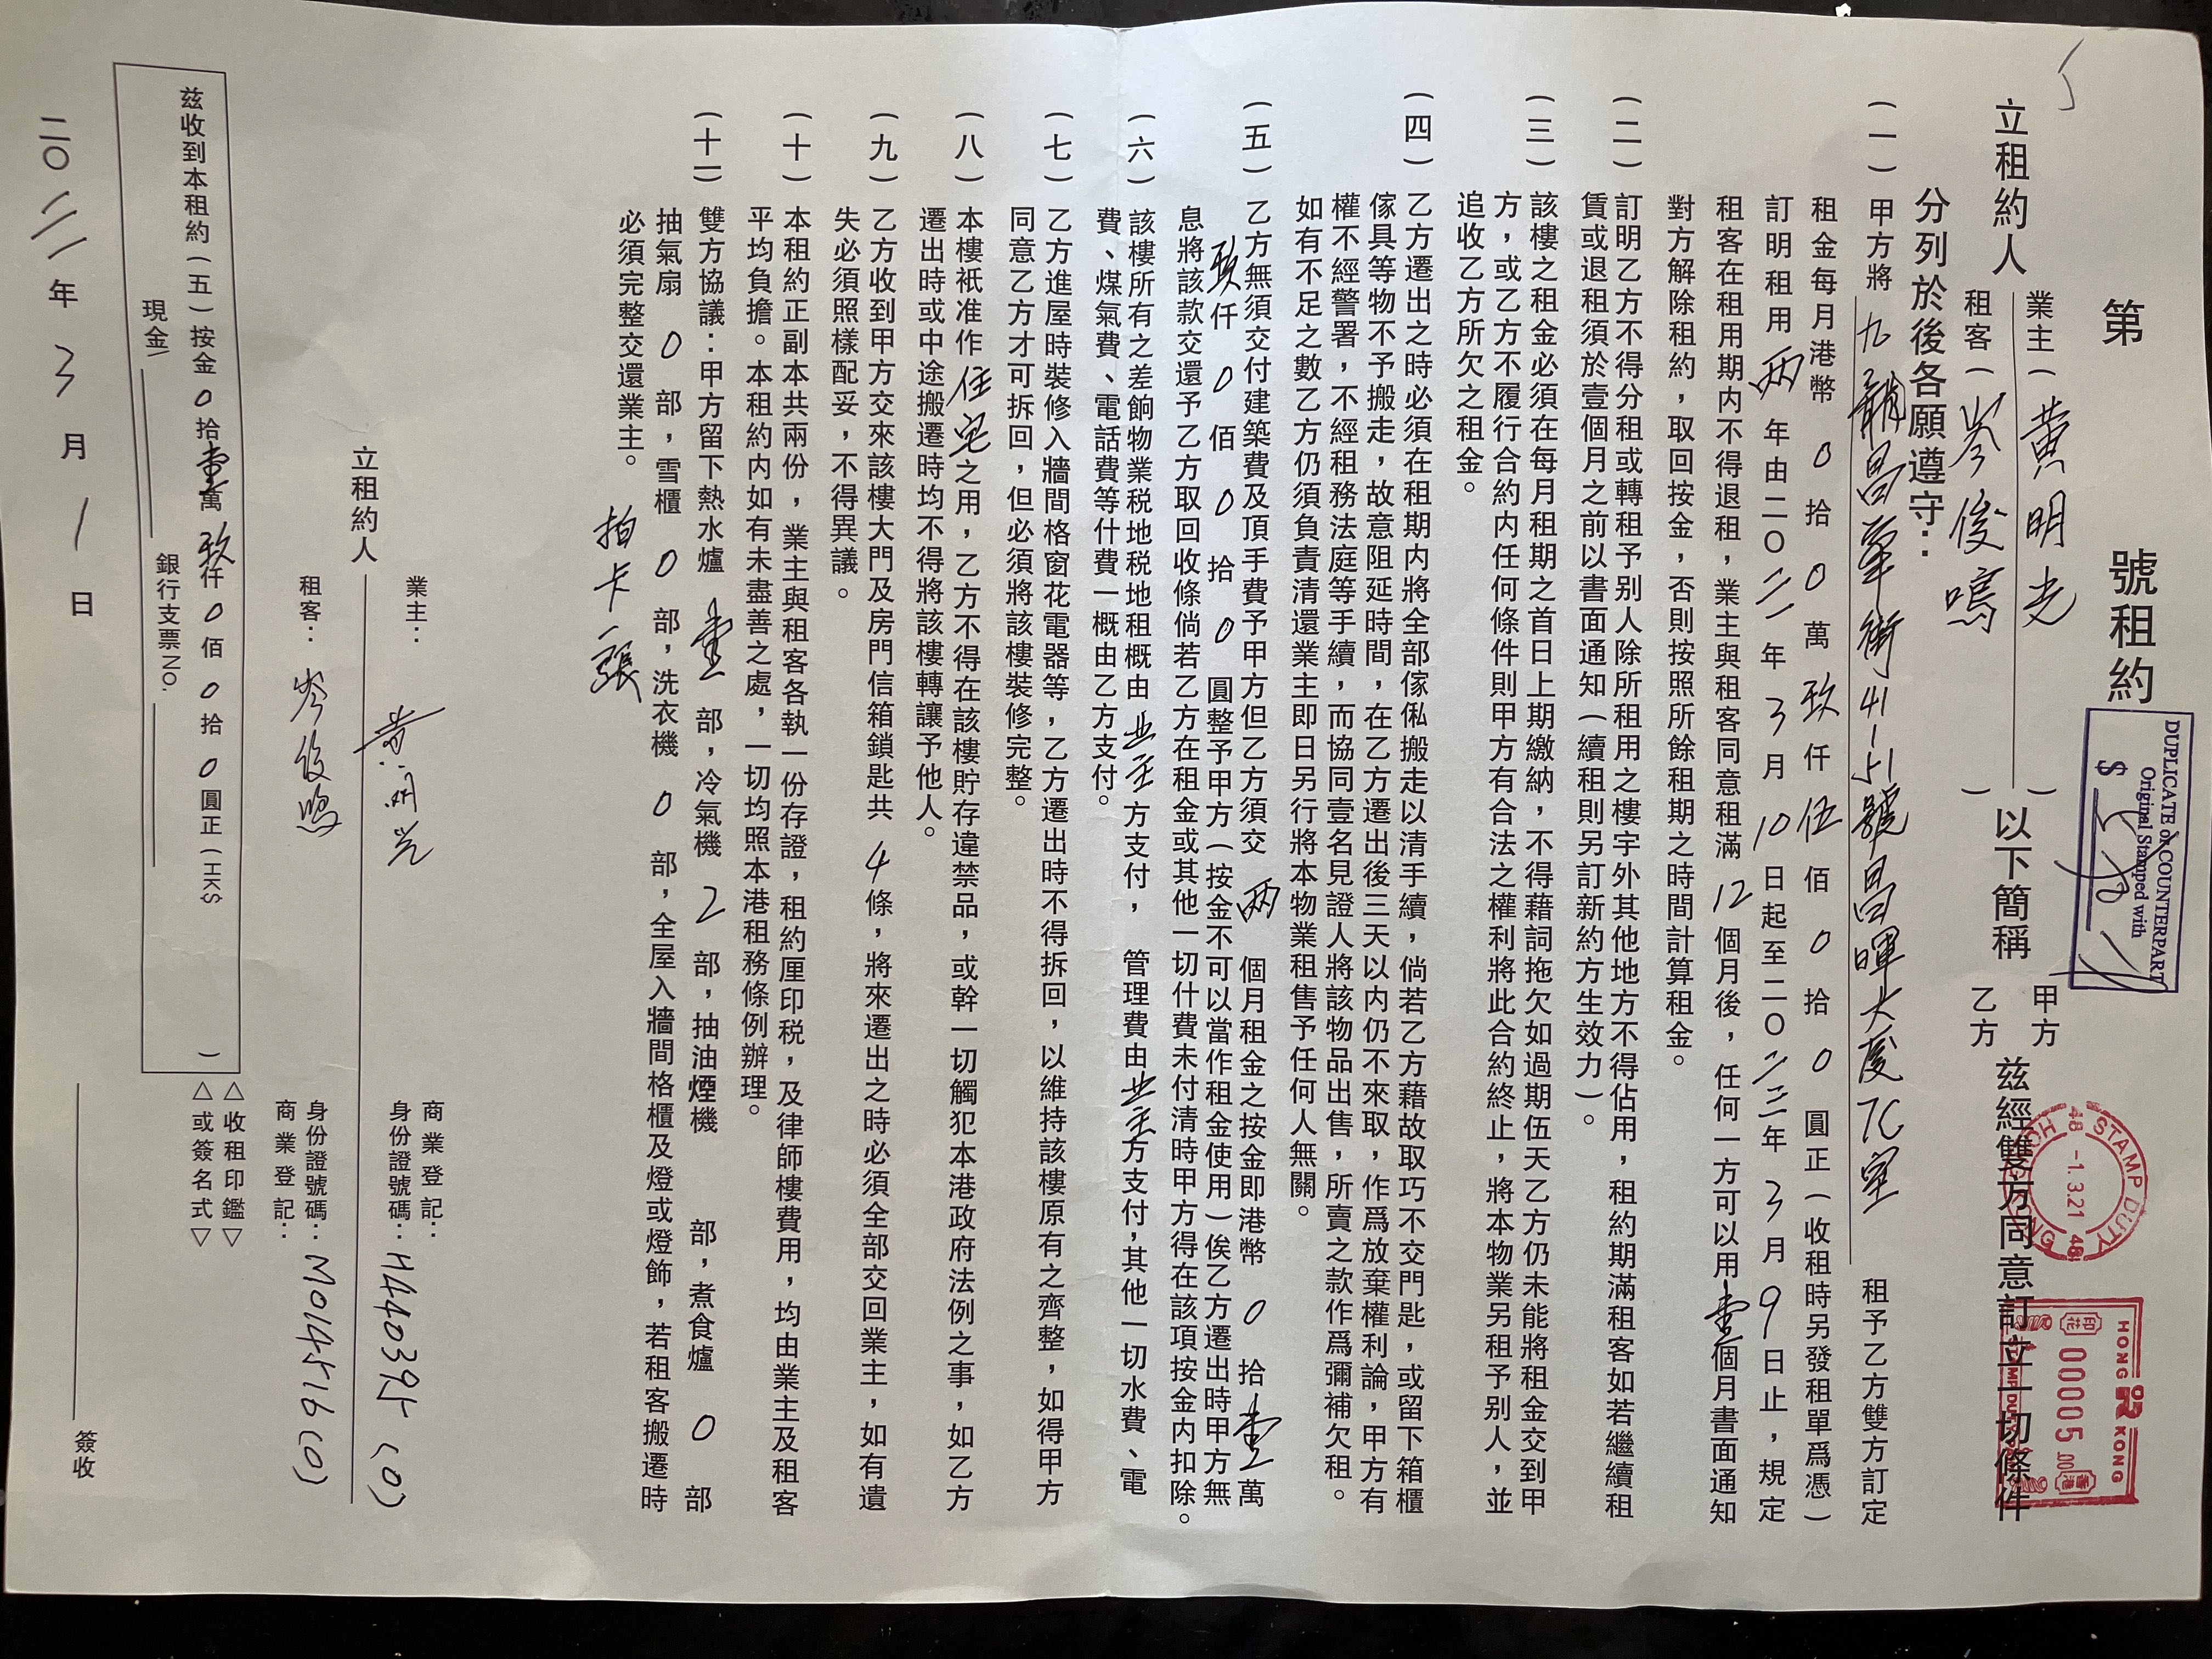 第　號租約
DUPLICATE or COUNTERPART
Original Stamped with
$
HONG KONG
STAMP DUTY
-1.3.21
48
48
HONG KONG
印花
00005.00
香港
STAMP DUTY
立租約人
業主（黃明光）
租客（岑俊鳴）
以下簡稱
甲方
乙方
茲經雙方同意訂立一切條件
分列於後各願遵守：
（一）甲方將九龍昌華街41-51號昌暉大廈7C室租予乙方雙方訂定
租金每月港幣0拾0萬玖仟伍佰0拾0圓正（收租時另發租單爲憑）
訂明租用兩年由二〇二一年3月10日起至二〇二三年3月9日止，規定
租客在租用期內不得退租，業主與租客同意租滿12個月後，任何一方可以用壹個月書面通知
對方解除租約，取回按金，否則按照所餘租期之時間計算租金。
（二）訂明乙方不得分租或轉租予別人除所租用之樓宇外其他地方不得佔用，租約期滿租客如若繼續租
賃或退租須於壹個月之前以書面通知（續租則另訂新約方生效力）。
（三）該樓之租金必須在每月租期之首日上期繳納，不得藉詞拖欠如過期伍天乙方仍未能將租金交到甲
方，或乙方不履行合約內任何條件則甲方有合法之權利將此合約終止，將本物業另租予別人，並
追收乙方所欠之租金。
（四）乙方遷出之時必須在租期內將全部傢俬搬走以清手續，倘若乙方藉故取巧不交門匙，或留下箱櫃
傢具等物不予搬走，故意阻延時間，在乙方遷出後三天以內仍不來取，作爲放棄權利論，甲方有
權不經警署，不經租務法庭等手續，而協同壹名見證人將該物品出售，所賣之款作爲彌補欠租。
如有不足之數乙方仍須負責清還業主即日另行將本物業租售予任何人無關。
（五）乙方無須交付建築費及頂手費予甲方但乙方須交兩個月租金之按金即港幣0拾壹萬
玖仟0佰0拾0圓整予甲方（按金不可以當作租金使用）俟乙方遷出時甲方無
息將該款交還予乙方取回收條倘若乙方在租金或其他一切什費未付清時甲方得在該項按金內扣除。
（六）該樓所有之差餉物業税地税地租概由业主方支付，管理費由业主方支付，其他一切水費、電
費、煤氣費、電話費等什費一概由乙方支付。
（七）乙方進屋時裝修入牆間格窗花電器等，乙方遷出時不得拆回，以維持該樓原有之齊整，如得甲方
同意乙方才可拆回，但必須將該樓裝修完整。
（八）本樓衹准作住宅之用，乙方不得在該樓貯存違禁品，或幹一切觸犯本港政府法例之事，如乙方
遷出時或中途搬遷時均不得將該樓轉讓予他人。
（九）乙方收到甲方交來該樓大門及房門信箱鎖匙共4條，將來遷出之時必須全部交回業主，如有遺
失必須照樣配妥，不得異議。
（十）本租約正副本共兩份，業主與租客各執一份存證，租約厘印税，及律師樓費用，均由業主及租客
平均負擔。本租約內如有未盡善之處，一切均照本港租務條例辦理。
（十一）雙方協議：甲方留下熱水爐壹部，冷氣機2部，抽油煙機　部，煮食爐0部
抽氣扇0部，雪櫃0部，洗衣機0部，全屋入牆間格櫃及燈或燈飾，若租客搬遷時
必須完整交還業主。
拍卡一張
立租約人
業主：黃明光
商業登記：
身份證號碼：H440395(0)
租客：岑俊鳴
身份證號碼：M014516(0)
商業登記：
茲收到本租約（五）按金0拾壹萬玖仟0佰0拾0圓正（HK$　）
現金/　銀行支票NO.
△收租印鑑▽
△或簽名式▽
簽收
二〇二一年3月1日